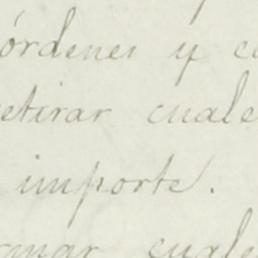 órdenes y co
retirar cuale
importe.
rmar cuale